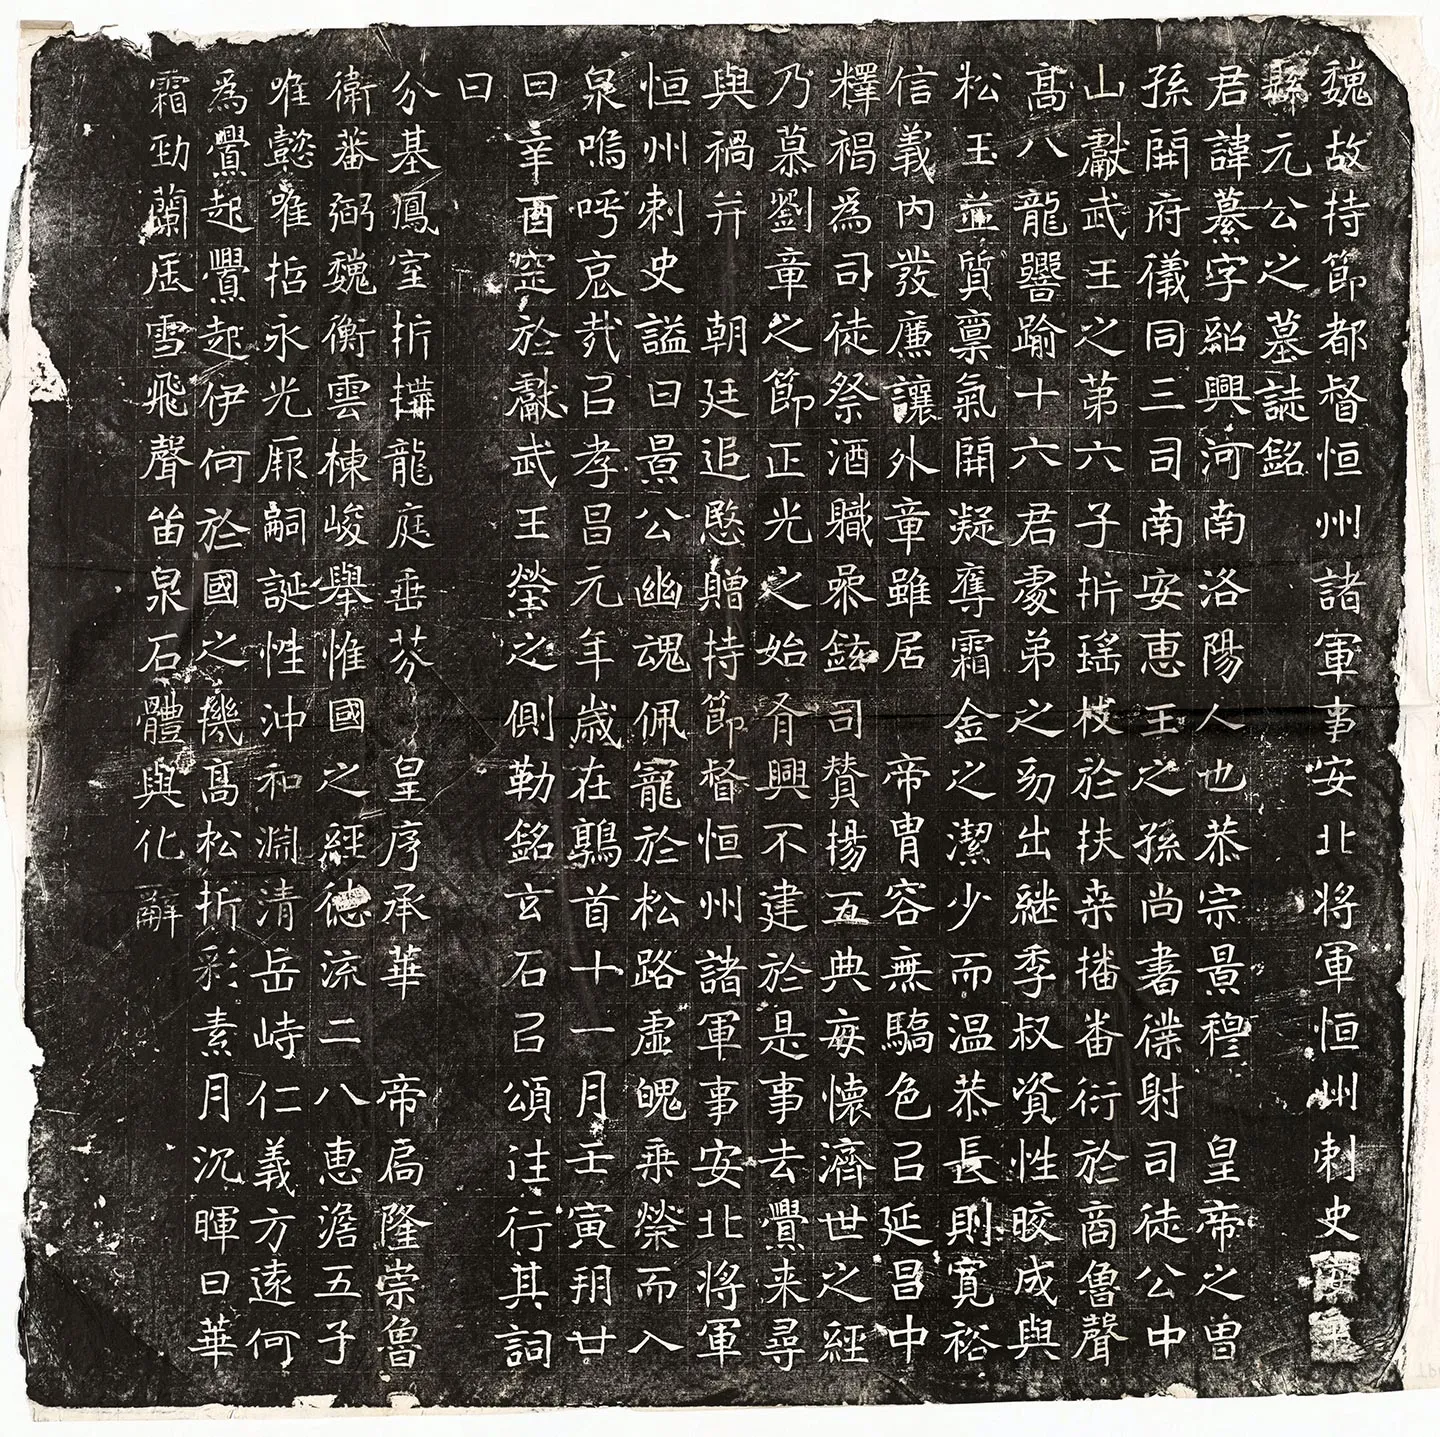 魏故持節都督恒州諸軍事安北将軍恒州刺史
縣元公之墓誌銘
君諱纂字紹興河南洛陽人也恭宗景穆皇帝之曽
孫開府儀同三司南安惠王之孫尚書僕射司徒公中
山獻武王之第六子折瑤枝於扶桒播番衍於商魯聲
高八龍響踰十六君處弟之㓜出継季叔資性皎成與
松玉並質稟氣開凝奪霜金之潔少而温恭長則寬裕
信義内發廉讓外章雖居帝胄容無驕色㠯延昌中
釋褐為司徒祭酒職叅鉉司賛揚五典每懷濟世之經
乃慕劉章之節正光之始胥興不建於是事去舋来尋
與禍并朝廷追愍贈持節督恒州諸軍事安北将軍
恒州刺史謚曰景公幽魂佩寵於松路虛魄乗榮而入
泉嗚呼哀㢤㠯孝昌元年歲在鶉首十一月壬寅朔廿
日辛酉窆於獻武王塋之側勒銘玄石㠯頌往行其詞
曰
分基鳳室折構龍庭垂芬皇序承華帝扄隆崇魯
衛蕃弼魏衡雲棟峻舉惟國之經德流二八惠澹五子
唯懿唯哲永光厥嗣誕性沖和淵清岳峙仁義方遠何
為舋起舋起伊何於國之機高松折彩素月沉暉日華
霜勁蘭㞐雪飛聲笛泉石體與化辭